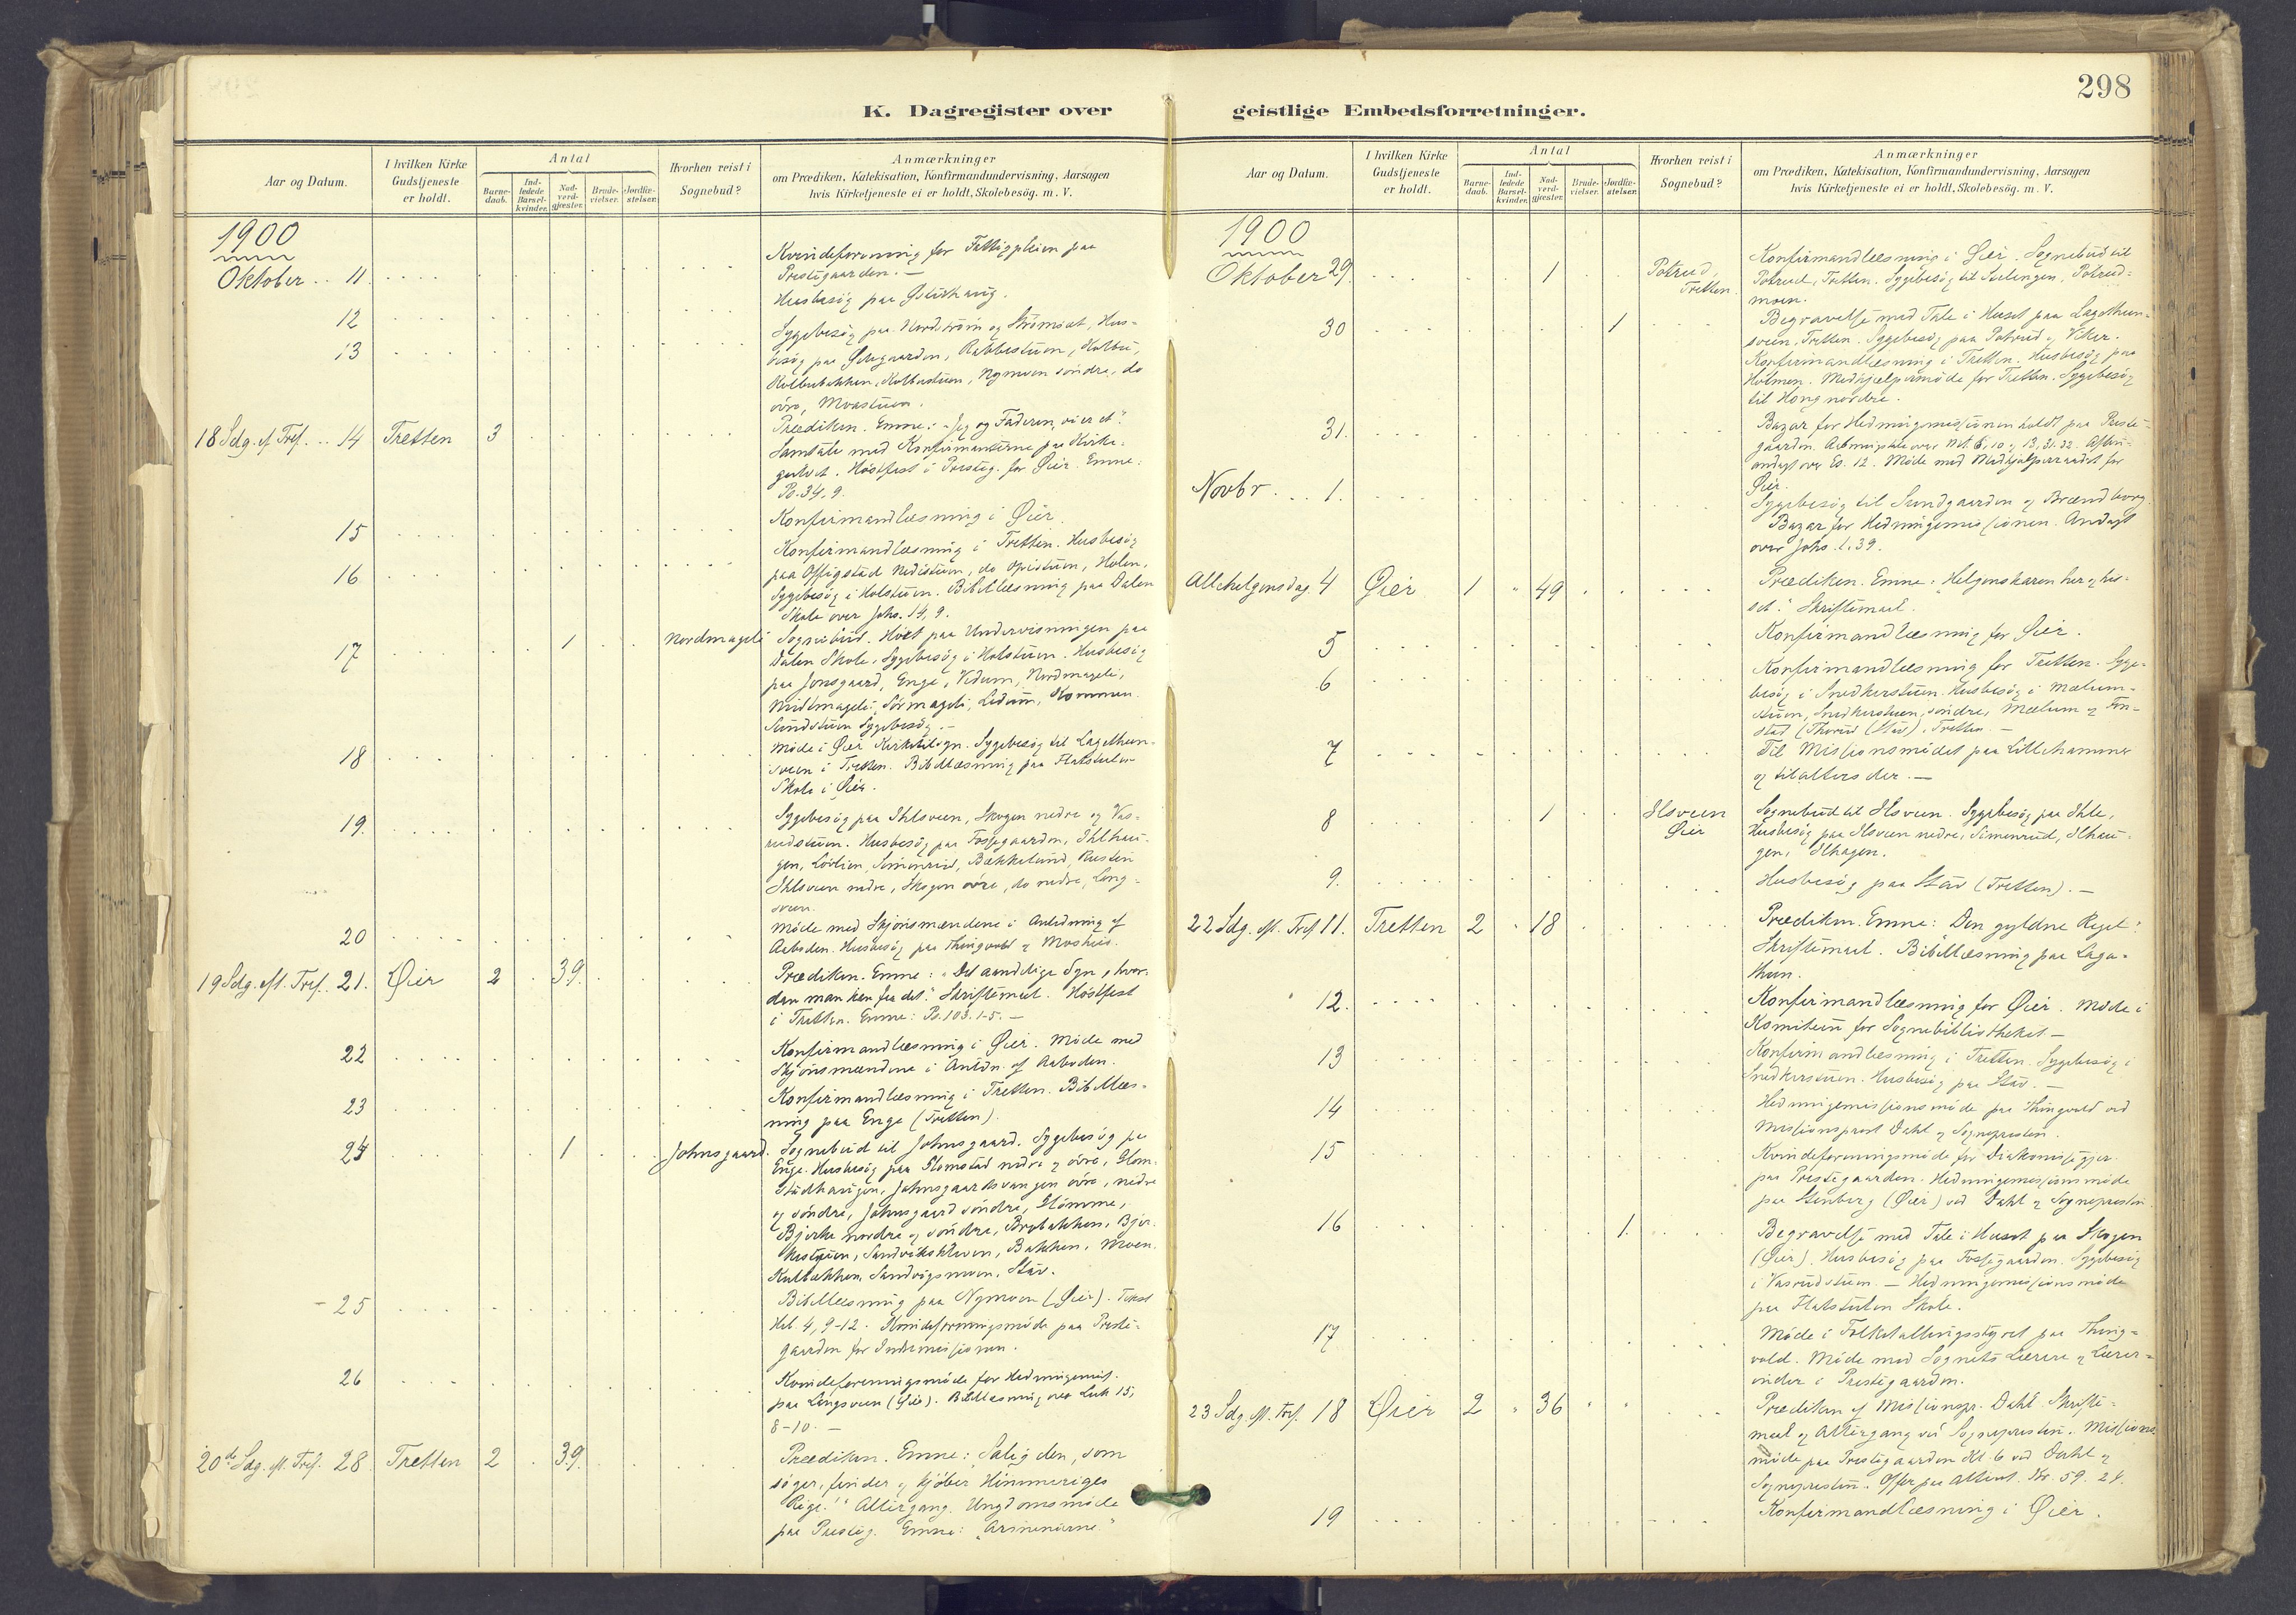 298
K. Dagregister over
geistlige Embedsforretninger.
Aar og Datum.
I hvilken Kirke
Gudstjeneste
er holdt.
Antal
Barne-
daab.
Ind-
ledede
Barsel-
kvinder.
Nad-
verd-
gjæster.
Brude-
vielser.
Jordfæ-
stelser.
Hvorhen reist i
Sognebud?
Anmærkninger
om Prædiken, Katekisation, Konfirmandundervisning, Aarsagen
hvis Kirketjeneste ei er holdt, Skolebesög. m. V.
1900
Oktober .. 11.
Kvindeforening for Fattigpleien paa
Prestegaarden. —
Husbesög paa
12
Sygebesög paa Nordström og Hus-
13
besög paa Rabbestuen, Kolbu,
Kolbubakken, Kolbustuen, Nymoen söndre, do
övre, Moastuen.
18 Sdg. ef. Tref. .. 14 Tretten 3
Prædiken. Emne: "Jeg og Faderen, vi er et".
Samtale med Konfirmanterne paa Kirke-
gulvet. Höstfest i Presteg. for Øier. Emne:
Ps. 34, 9.
15
Konfirmandlæsning i Øier
16
Konfirmandlæsning i Tretten. Husbesög
paa Offigstad Nedistuen, do Opistuen, Holen,
Sygebesög i Holstuen. Bibellæsning paa Dalen
Skole over Johs. 14, 9.
17 1 Nordmageli
Sognebud. Hört paa Undervisningen paa
Dalen Skole. Sygebesög i Holstuen. Husbesög
paa Jonsgaard, Enge, Vedum, Nordmageli,
Midtmageli, Sörmageli, Lidum, Kommen.
Sundstuen Sygebesög. —
18
Möde i Øier Kirketilsyn. Sygebesög til Lagethun-
sveen i Tretten. Bibellæsning paa Flakstulen
Skole i Øier.
19.
Sygebesög paa Ihlsveen, Skogen nedre og Vas-
rudstuen. Husbesög paa Fossegaarden, Ihlhau-
gen, Lövlien, Simenrud, Bækkelund, Rusten
Ihlsveen nedre, Skogen övre, do nedre, Lang-
sveen.
20
Möde med Skjönsmændene i Anledning af
Aaboden. Husbesög paa Thingvold og Moshus.
19 Sdg. eft. Tref. 21. Øier 2 39.
Prædiken. Emne: "Det aandelige Syn, hvor-
dan man kan faa det." Skriftemaal. Höstfest
i Tretten. Emne: Ps. 103. 1-5. —
22
Konfirmandlæsning i Øier. Möde med
Skjönsmændene i Anledn. af Aaboden.
23
Konfirmandlæsning i Tretten. Bibellæs-
ning paa Enge (Tretten).
24 1 Johnsgaard.
Sognebud til Johnsgaard. Sygebesög paa
Enge. Husbesög paa Glomstad nedre og övre, Glom-
stadhaugen, Johnsgaardsvangen övre, nedre
og söndre, Johnsgaard söndre, Glömme,
Bjerke nordre og söndre, Brybakken, Bjer-
kestuen, Sandvikskleven, Bakken, Moen,
Kulbakken, Sandvigsmoen, Stav.
25
Bibellæsning paa Nymoen (Øier). Text
Heb. 4, 9-12. Kvindeforeningsmöde paa Preste-
gaarden for Indremissionen.
26
Kvindeforeningsmöde for Hedningemiss.
paa Langsveen (Øier). Bibellæsning over Luk 15,
8-10. —
20de Sdg. eft. Tref. 28 Tretten 2 39.
Prædiken. Emne: Salig den, som
söger, finder og kjöber Himmeriges
Rige!" Altergang. Ungdomsmöde
paa Presteg. Emne: "Armenierne."
Aar og Datum.
I hvilken Kirke
Gudstjeneste
er holdt.
Antal
Barne-
daab.
Ind-
ledede
Barsel-
kvinder.
Nad-
verd-
gjæster.
Brude-
vielser.
Jordfæ-
stelser.
Hvorhen reist i
Sognebud?
Anmærkninger
om Prædiken, Katekisation, Konfirmandundervisning, Aarsagen
hvis Kirketjeneste ei er holdt, Skolebesög. m. V.
1900
Oktober 29. 1 Potrud, Tretten.
Konfirmandlæsning i Øier. Sognebud til
Potrud, Tretten. Sygebesög til Potrud-
moen.
30 1
Begravelse med Tale i Huset paa Lagethun-
sveen, Tretten. Sygebesög paa Potrud og Viker.
Konfirmandlæsning i Tretten. Husbesög paa
Holmen. Medhjælpermöde for Tretten. Sygebesög
til Hong nordre.
31.
Bazar for Hedningemissionen holdt paa Preste-
gaarden. Aabningstale over Mt. 6, 10 og 13, 31. 32. Aften-
andagt over Es. 12. Möde med Medhjælperraadet for
Øier.
Novbr ... 1.
Sygebesög til Sundgaarden og Brændborg.
Bazar for Hedningemissionen. Andagt
over Johs. 1. 39.
Allehelgensdag 4 Øier 1 " 49
Prædiken. Emne: Helgenskaren her og his-
set." Skriftemaal.
5
Konfirmandlæsning for Øier.
6
Konfirmandlæsning for Tretten. Syge-
besög i Snedkerstuen. Husbesög i Mælum-
stuen, Snedkerstuen, söndre, Mælum og
stad (Stav), Tretten. —
7
Til Missionsmödet paa Lillehammer
og tilalters der. —
8 1 Ilsveen Øier
Sognebud til Ilsveen. Sygebesög paa Ihle,
Husbesög paa Ilsveen nedre, Simenrud, Ilhau-
gen, Ilhagen.
9.
Husbesög paa Stav (Tretten). —
22 Sdg. eft. Tref. 11. Tretten 2 " 18
Prædiken. Emne: Den gyldne Regel".
Skriftemaal. Bibellæsning paa Laga-
thun.
12.
Konfirmandlæsning for Øier. Möde i
Komiteen for Sognebibliotheket —
13
Konfirmandlæsning i Tretten. Sygebesög i
Snedkerstuen. Husbesög paa Stav. —
14
Hedningemissionsmöde paa Thingvold ved
Missionsprest Dahl og Sognepresten.
15
Kvindeforeningsmöde for Diakonissegjer.
paa Prestegaarden. Hedningemissionsmöde
paa Stenberg (Øier) ved Dahl og Sognepresten.
16 1.
Begravelse med Tale i Huset paa Skogen
(Øier). Husbesög paa Fossegaarden. Sygebesög
i Vasrudstuen. — Hedningemissionsmöde
paa Flakstulen Skole.
17
Möde i Folketællingsstyret paa Thing-
vold. Möde med Sognets Lærere og Lærer-
inder i Prestegaarden.
23 Sdg. eft. Tref. 18 Øier 2 " 36 " "
Prædiken af Missionspr. Dahl. Skrifte-
maal og Altergang ved Sognepresten. Missions-
möde paa Prestegaarden Kl. 6 ved Dahl og
Sognepresten. Offer paa Alteret. Kr. 59. 28.
19
Konfirmandlæsning i Øier.